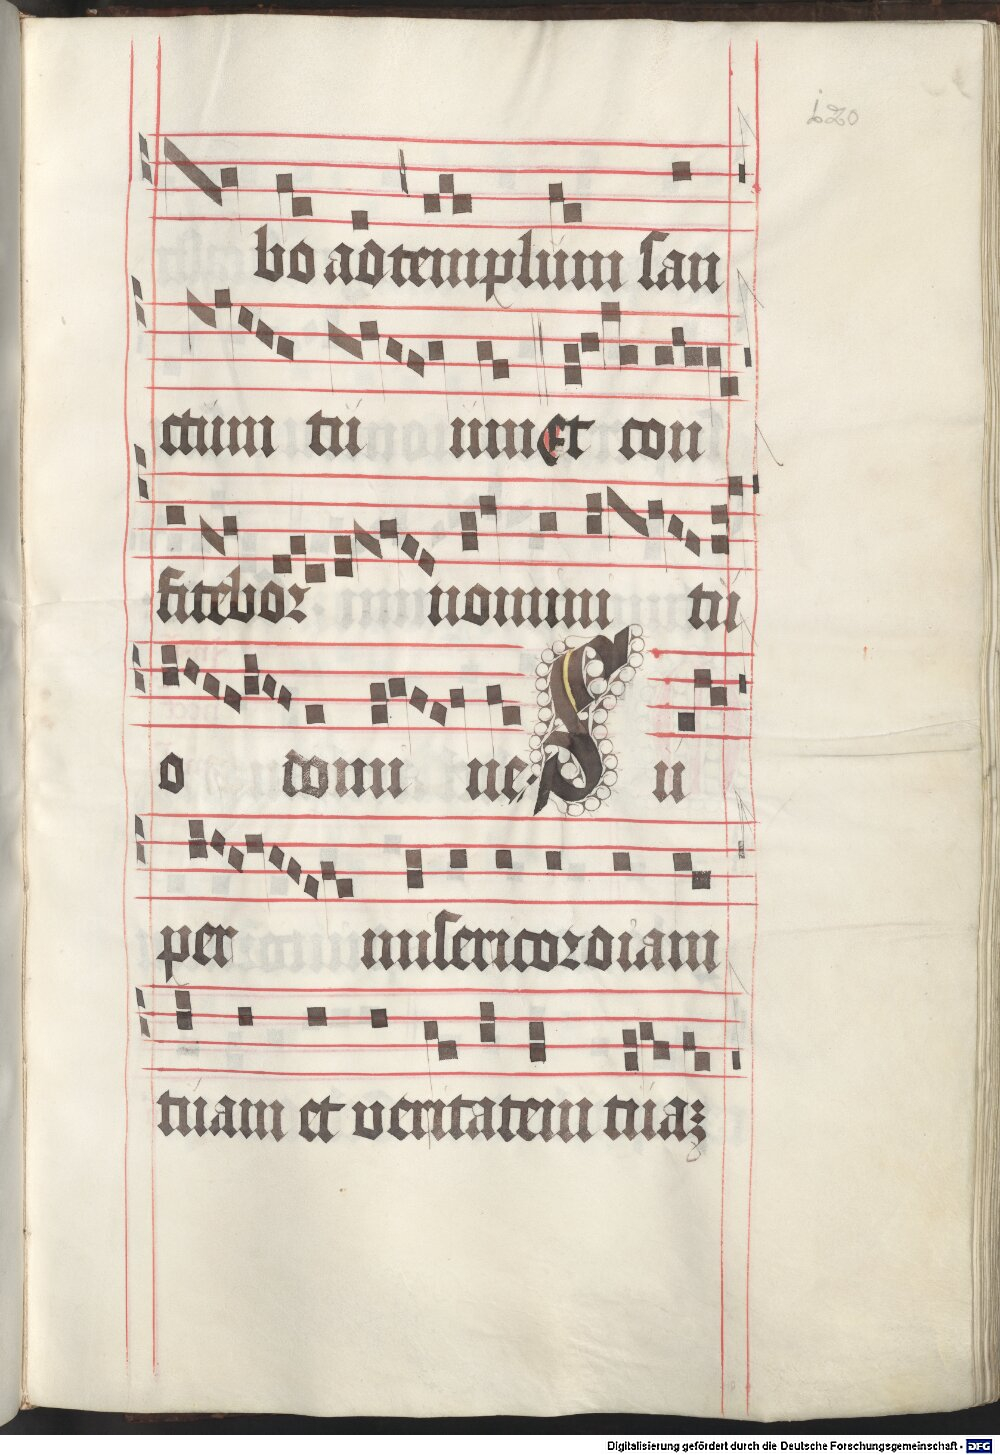 120
bo ad templum san
ctum tu um Et con
fitebor nomini tu
o domi ne. Su
per misericordiam
tuam et veritatem tuaʒ
Digitalisierung gefördert durch die Deutsche Forschungsgemeinschaft - DFG